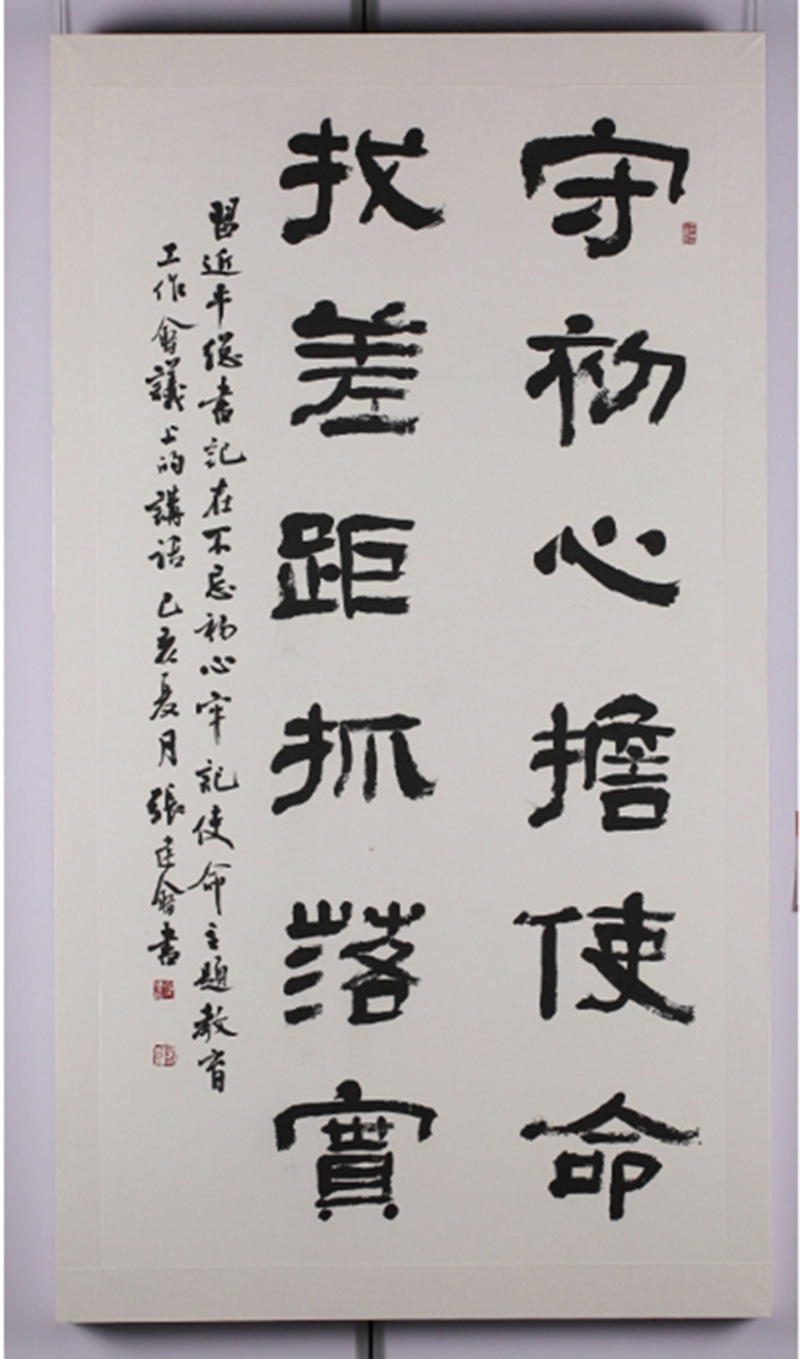 守初心擔使命
找差距抓落實
習近平總書記在不忘初心牢記使命主題教育
工作會議上的講話 己亥夏月 張建會書